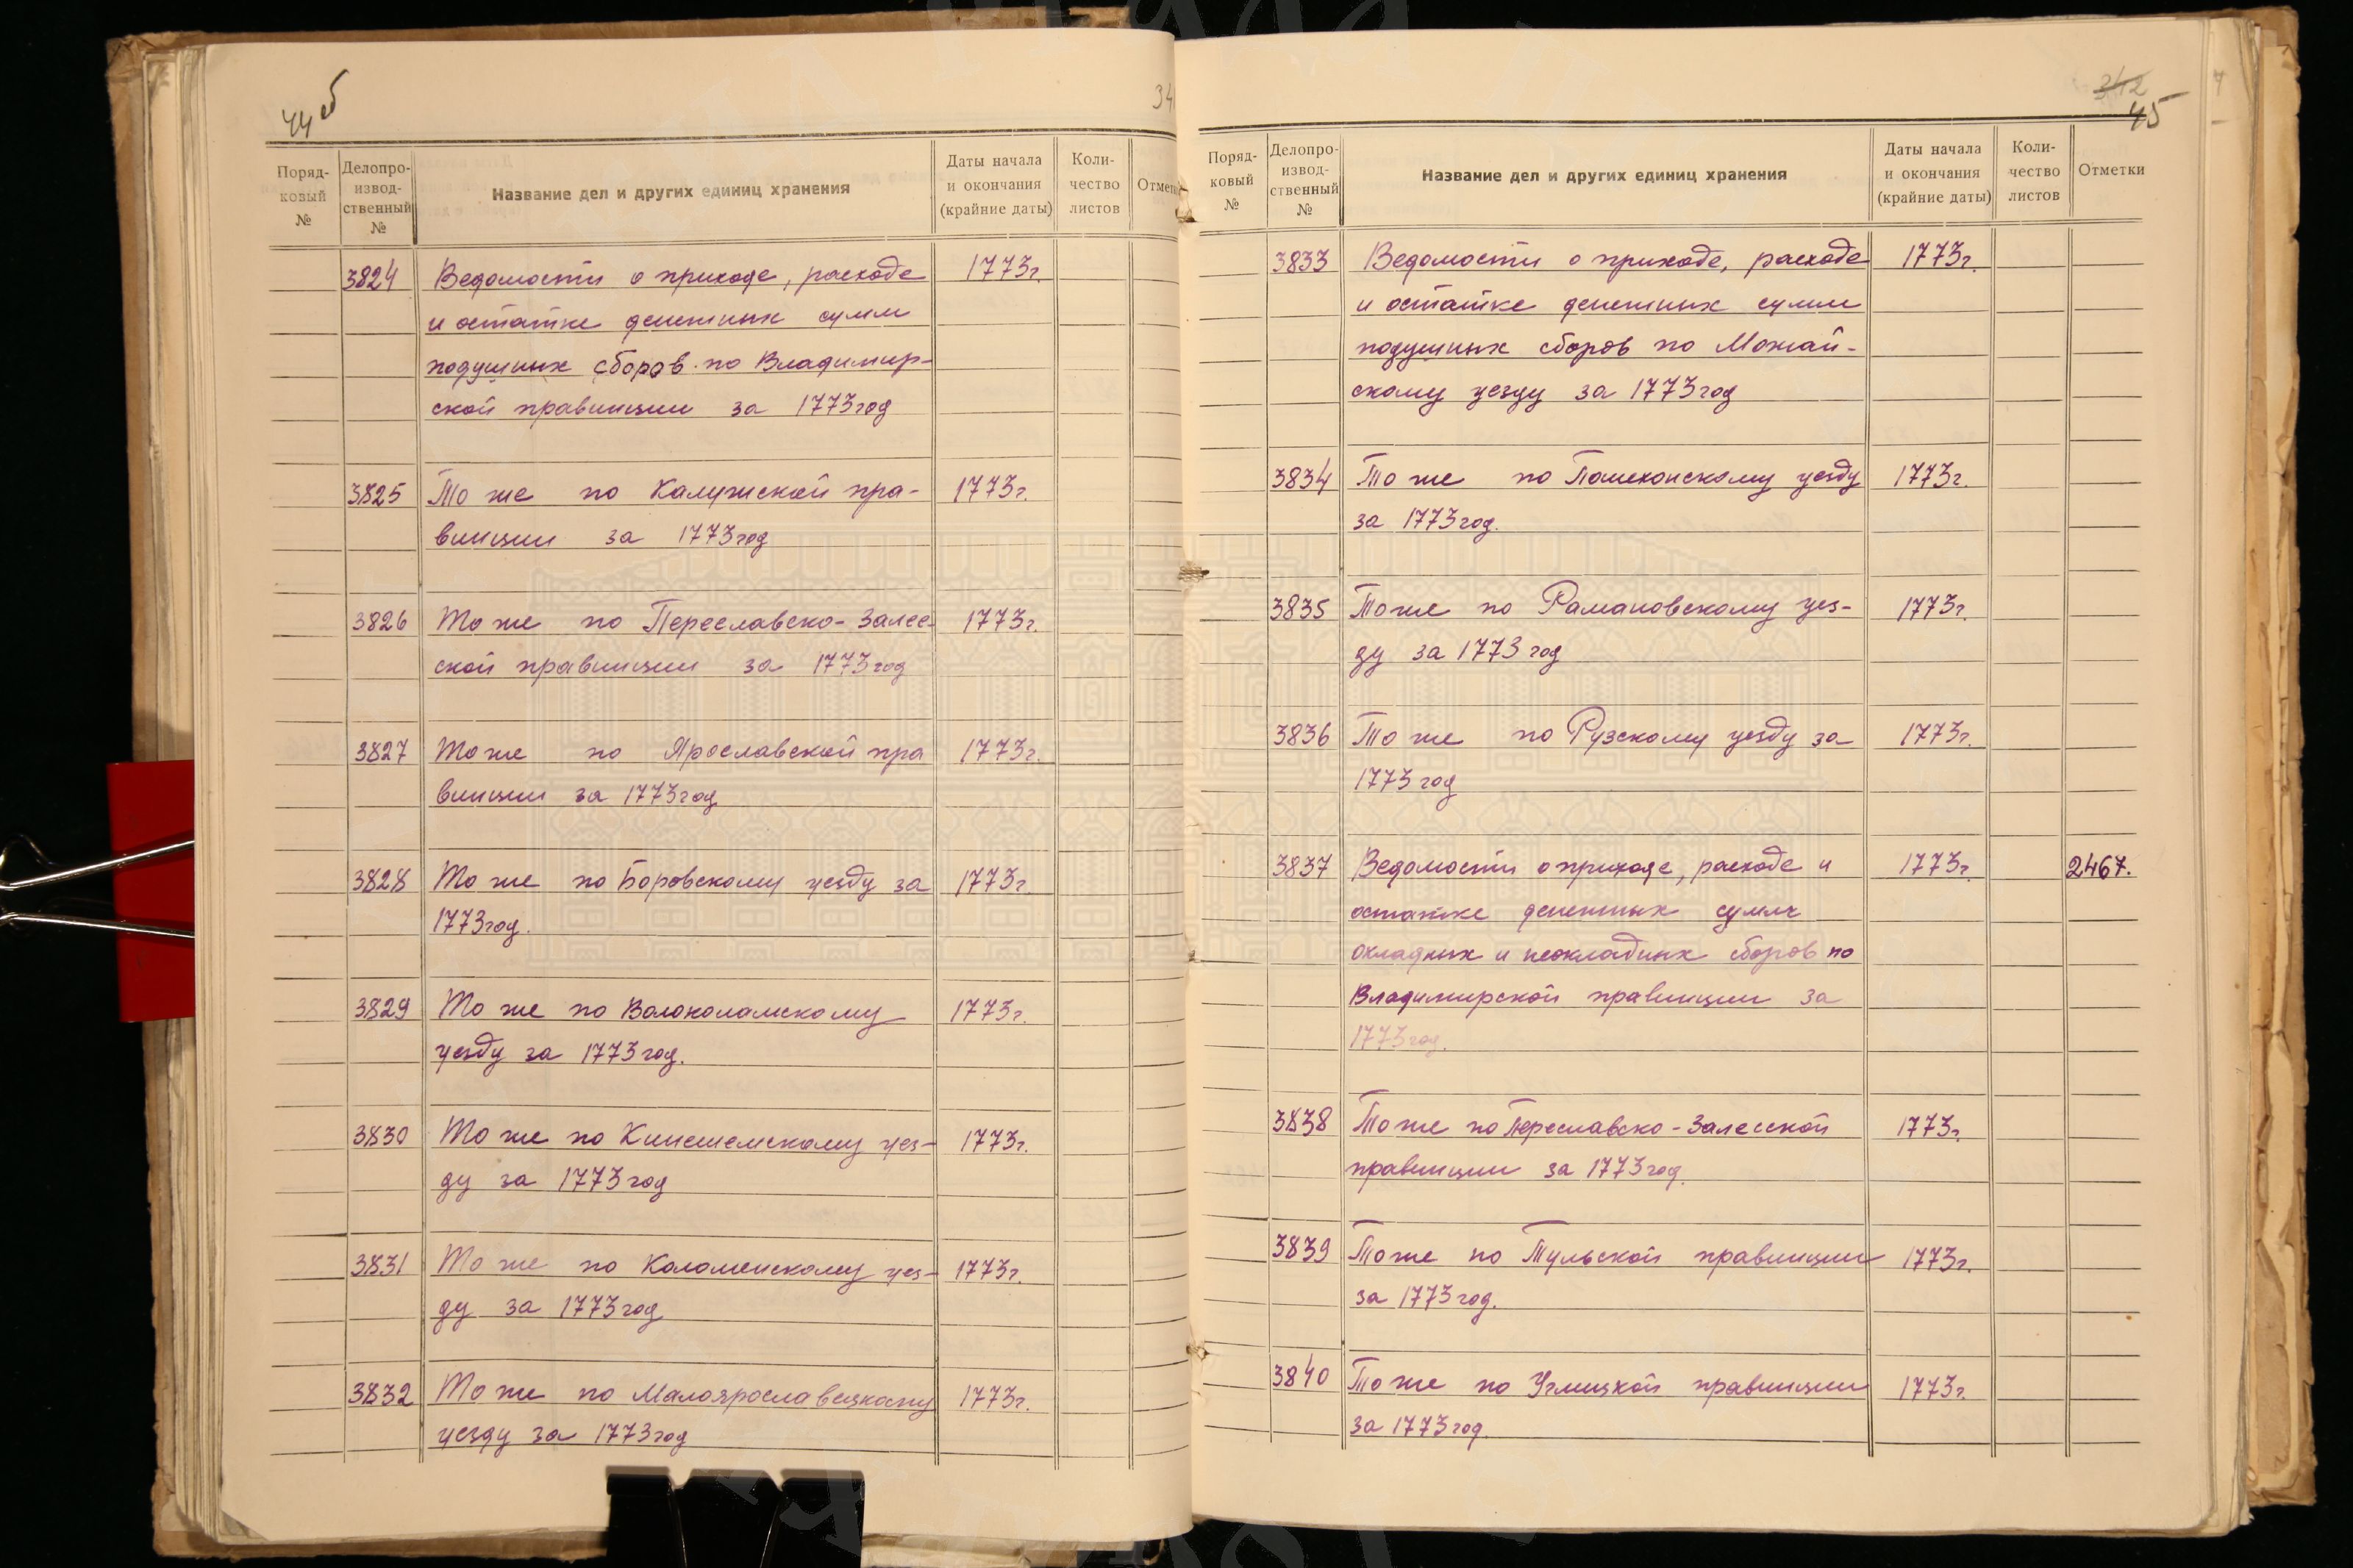 44 об
34
Поряд-
ковый
№
Делопро-
извод-
ственный
№
Название дел и других единиц хранения
Даты начала
и окончания
(крайние даты)
Коли-
чество
листов
Отметки
3824 Ведомости о приходе, расходе 1773г.
и остатке денежных сумм
подушных сборов по Владимир-
ской правинции за 1773 год
3825 То же по Калужской пра- 1773г.
винции за 1773 год
3826 То же по Переславско-Залес- 1773г.
ской правинции за 1773 год
3827 То же по Ярославской пра 1773г.
винции за 1773 год
3828 То же по Боровскому уезду за 1773г
1773 год.
3829 То же по Волоколамскому 1773г.
уезду за 1773 год.
3830 То же по Кинешемскому уез- 1773г.
ду за 1773 год
3831 То же по Коломенскому уез- 1773г.
ду за 1773 год
3832 То же по Малоярославецкому 1773г.
уезду за 1773 год
342
45
Поряд-
ковый
№
Делопро-
извод-
ственный
№
Название дел и других единиц хранения
Даты начала
и окончания
(крайние даты)
Коли-
чество
листов
Отметки
3833 Ведомости о приходе, расходе 1773г.
и остатке денежных сумм
подушных сборов по Можай-
скому уезду за 1773 год
3834 То же по Пошехонскому уезду 1773г.
за 1773 год.
3835 То же по Романовскому уез- 1773г.
ду за 1773 год
3836 То же по Рузскому уезду за 1773г.
1773 год
3837 Ведомости о приходе, расходе и 1773г. 2467.
остатке денежных сумм
окладных и неокладных сборов по
Владимирской правинции за
1773 год.
3838 То же по Переславско-Залесской 1773г.
правинции за 1773 год.
3839 То же по Тульской правинции 1773г.
за 1773 год.
3840 То же по Углицкой правинции 1773г.
за 1773 год.